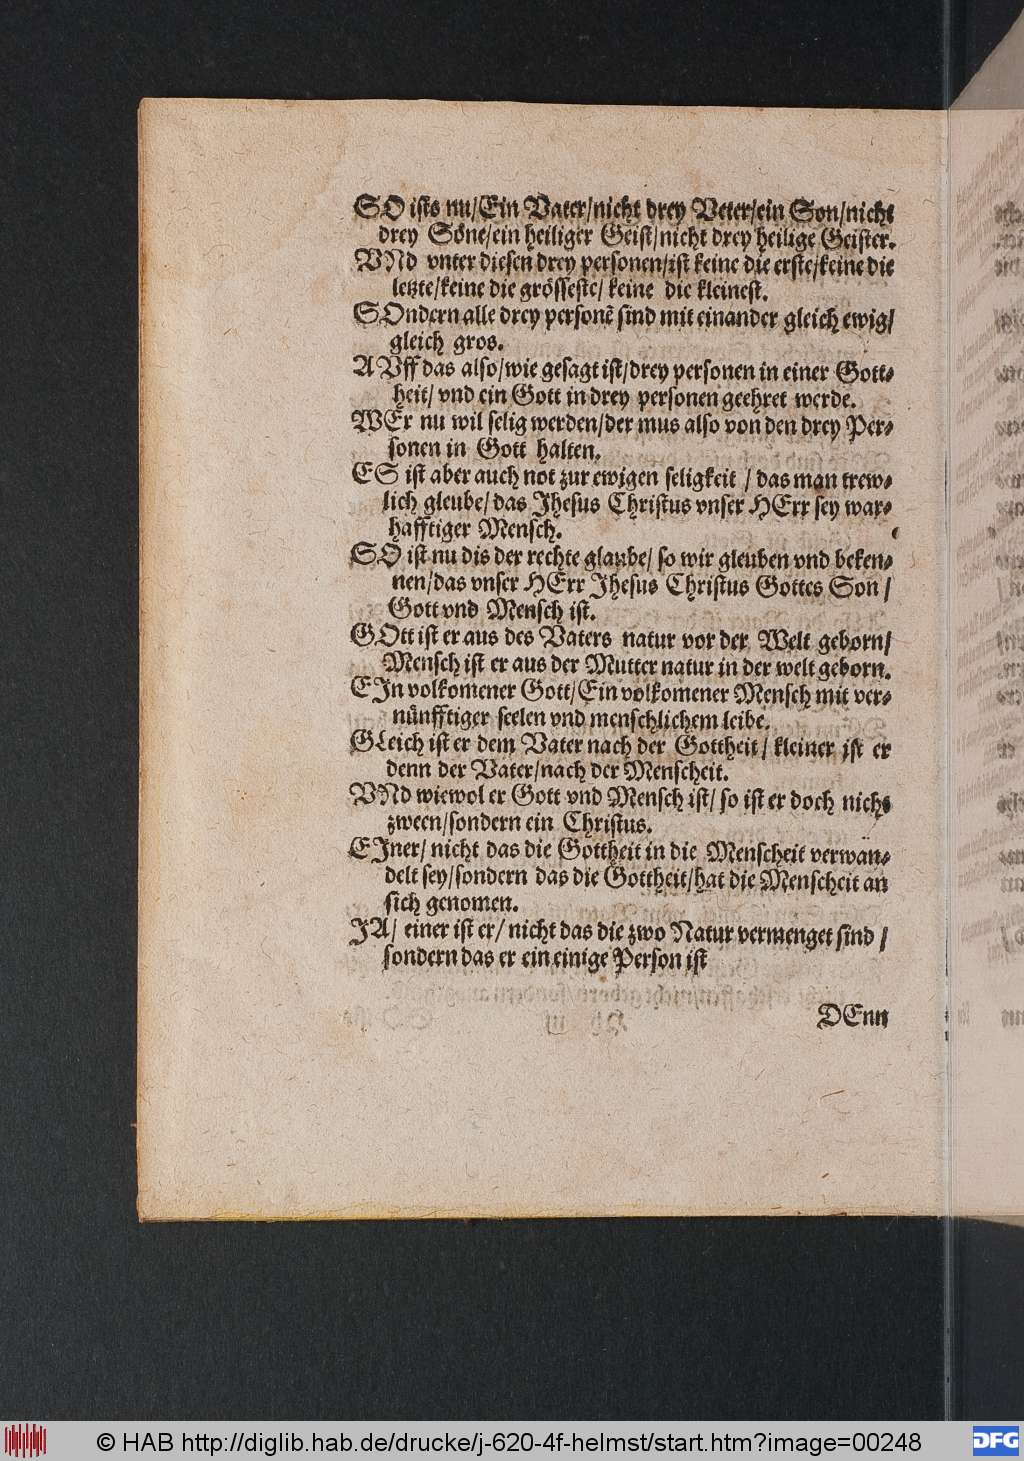 SO ists nu/Ein Vater/nicht drey Veter/ein Son/nicht
drey Söne/ein heiliger Geist/nicht drey heilige Geister.
VNd vnter diesen drey personen/ist keine die erste/keine die
letzte/keine die grösseste/ keine die kleinest.
SOndern alle drey personē sind mit einander gleich ewig/
gleich gros.
AVff das also/wie gesagt ist/drey personen in einer Gott⸗
heit/ vnd ein Gott in drey personen geehret werde.
WEr nu wil selig werden/der mus also von den drey Per⸗
sonen in Gott halten.
ES ist aber auch not zur ewigen seligkeit / das man trew⸗
lich gleube/ das Jhesus Christus vnser HErr sey war⸗
hafftiger Mensch.
SO ist nu dis der rechte glaube/ so wir gleuben vnd beken⸗
nen/das vnser HErr Jhesus Christus Gottes Son /
Gott vnd Mensch ist.
GOtt ist er aus des Vaters natur vor der Welt geborn/
Mensch ist er aus der Mutter natur in der welt geborn.
EJn volkomener Gott/Ein volkomener Mensch mit ver⸗
nünfftiger seelen vnd menschlichem leibe.
GLeich ist er dem Vater nach der Gottheit/ kleiner ist er
denn der Vater/nach der Menscheit.
VNd wiewol er Gott vnd Mensch ist/ so ist er doch nicht
zween/sondern ein Christus.
EJner/ nicht das die Gottheit in die Menscheit verwan⸗
delt sey/sondern das die Gottheit/hat die Menscheit an
sich genomen.
JA/ einer ist er/ nicht das die zwo Natur vermenget sind /
sondern das er ein einige Person ist
DEnn
© HAB http://diglib.hab.de/drucke/j-620-4f-helmst/start.htm?image=00248
DFG